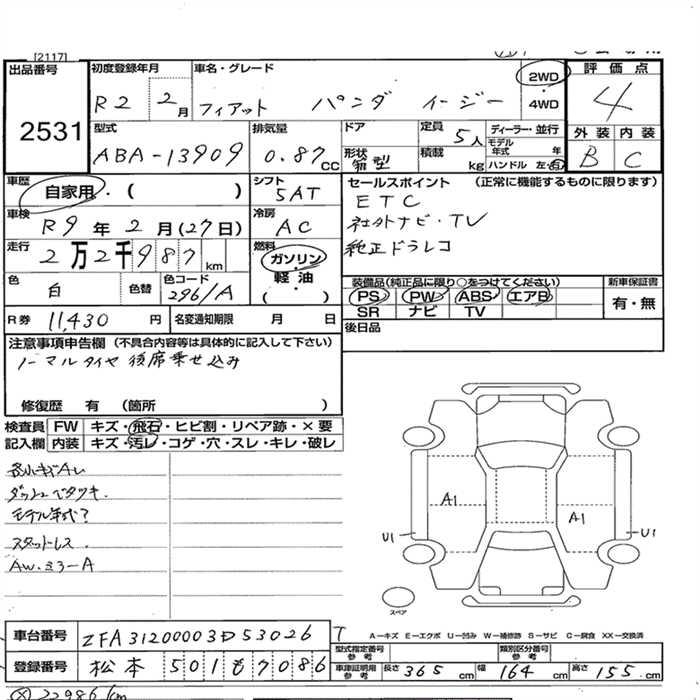 [2117]
出品番号
2531
初度登録年月
R2 2月
車名・グレード
フィアット パンダ イージー
2WD
・
4WD
評価点
4
外装 内装
B C
型式
ABA-13909
排気量
0.87 CC
ドア
形状 箱型
定員 5人
積載 kg
ディーラー・並行
モデル年式 年
ハンドル 左・右
車歴
自家用・( )
シフト
5AT
セールスポイント (正常に機能するものに限ります)
ETC
社外ナビ・TV
純正ドラレコ
車検
R9年2月(27日)
冷房
AC
走行
2万2千987km
燃料
ガソリン
・
軽油
( )
色
白
色替
色コード
296/A
装備品(純正品に限り○をつけてください)
PS PW ABS エアB
SR ナビ TV
新車保証書
有・無
R券 11,430円
名変通知期限 月 日
後日品
注意事項申告欄 (不具合内容等は具体的に記入して下さい)
ノーマルタイヤ後席乗せ込み
修復歴 有 (箇所 )
検査員記入欄
FW キズ・飛石・ヒビ割・リペア跡・×要
内装 キズ・汚レ・コゲ・穴・スレ・キレ・破レ
ダッシュベタツキ.
モデル年式?
スタットレス.
AW.ミラ-A
A1
A1
U1
U1
スペア
車台番号 ZFA31200003D53026
T
A-キズ E-エクボ U-凹み W-補修跡 S-サビ C-腐食 XX-交換済
型式指定番号参考
類別区分番号参考
登録番号 松本 501 も 7086
車庫証明用参考 長さ 365 cm 幅 164 cm 高さ 155 cm
22986km